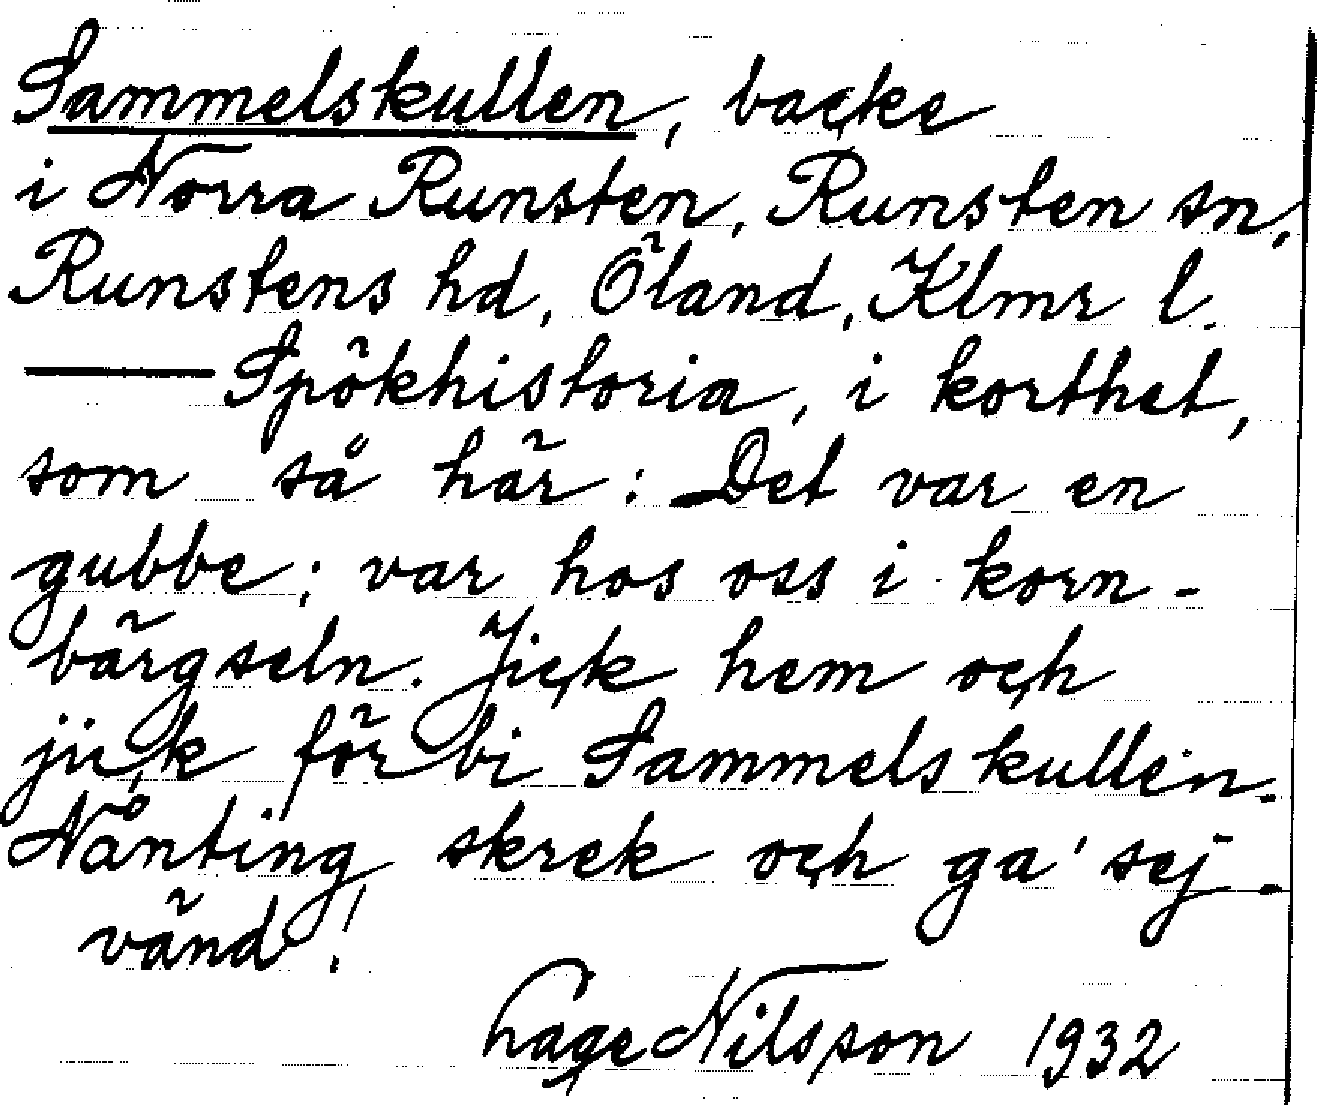 Sammelskullen, backe
i Norra Runsten, Runsten sn,
Runstens hd, Öland, Klmr l.
— Spökhistoria, i korthet,
som så här: Det var en
gubbe; var hos oss i korn-
bärgseln. Jick hem och
jick förbi Sammelskullen.
Nånting skrek och ga' sej
vänd!
Lage Nilsson 1932